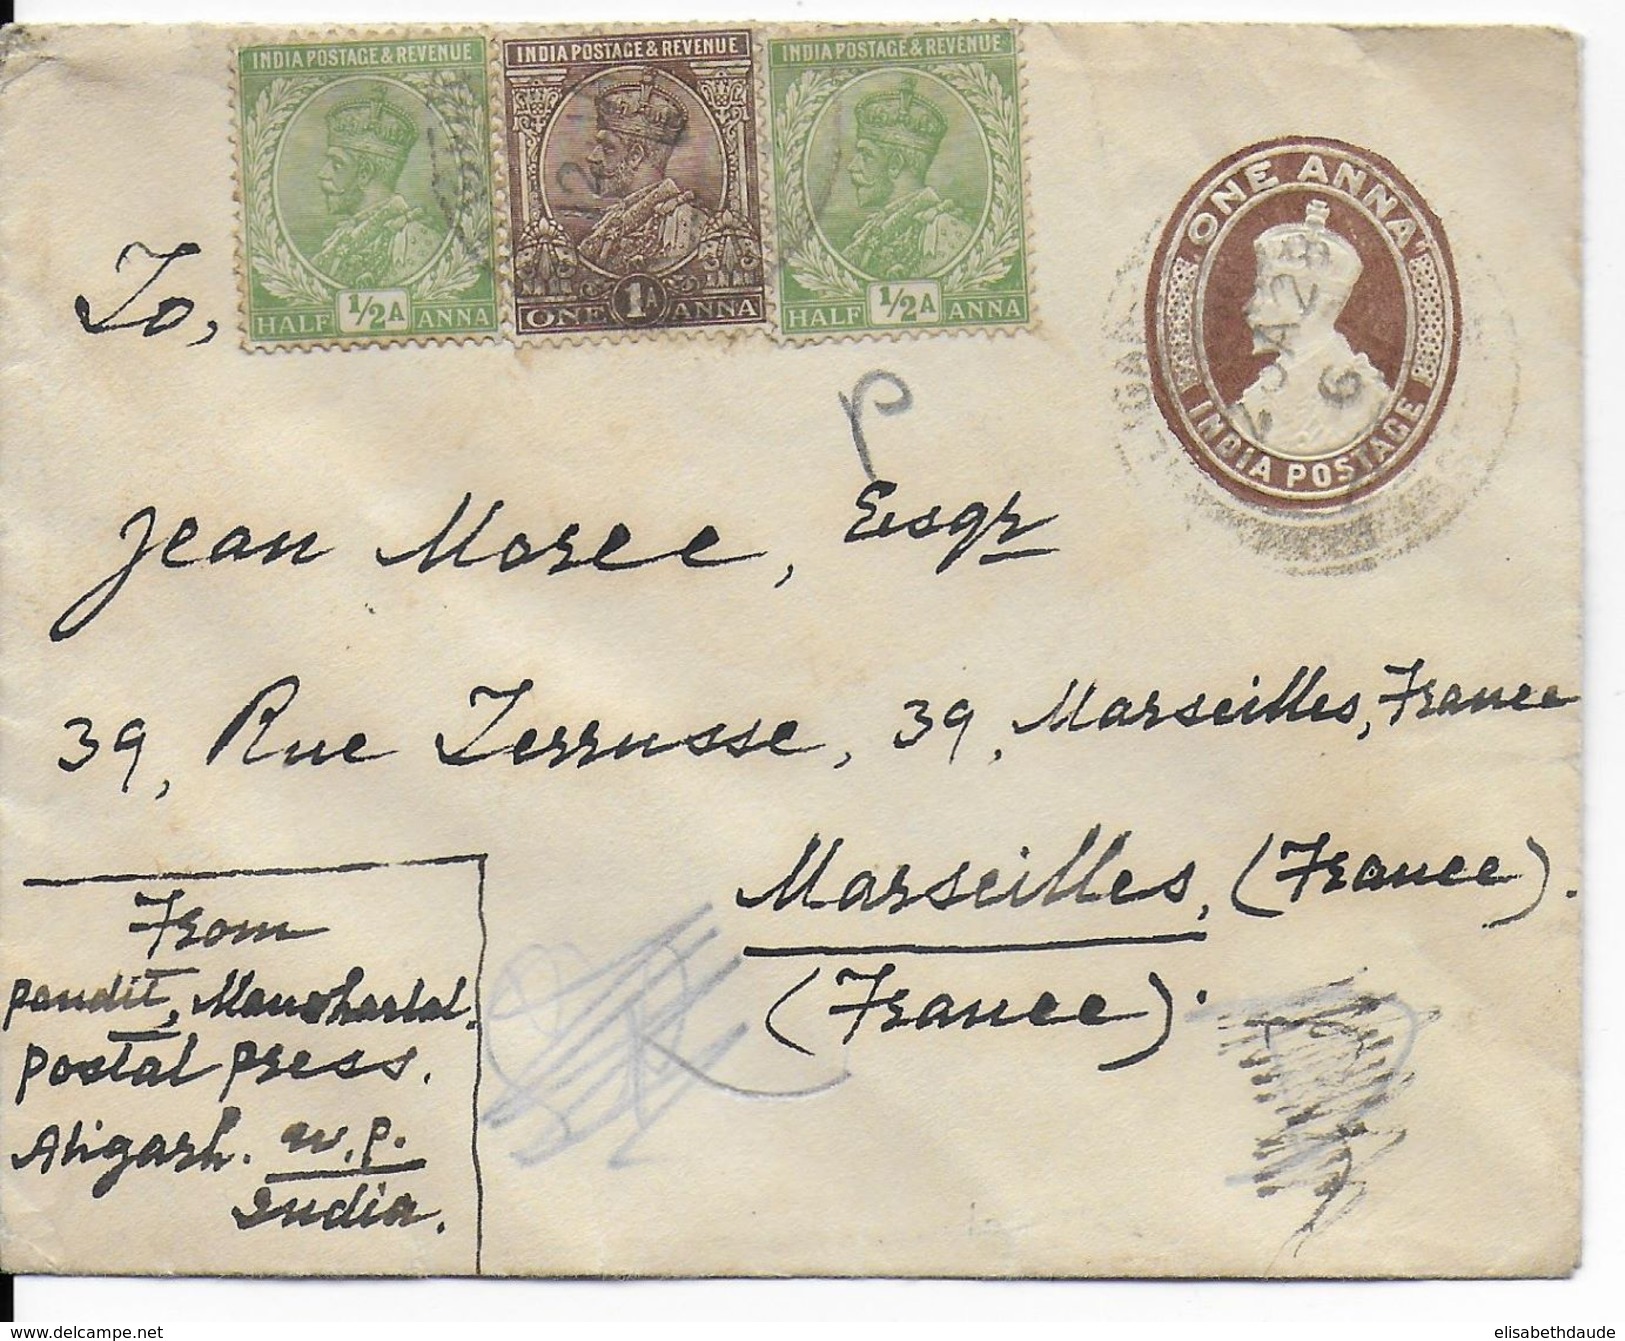 INDIA POSTAGE & REVENUE
HALF 1/2A ANNA
INDIA POSTAGE & REVENUE
ONE 1A ANNA
INDIA POSTAGE & REVENUE
HALF 1/2A ANNA
ONE ANNA
INDIA POSTAGE
To,
Jean Moree, Esqr
39, Rue Terrusse, 39, Marseilles, France
Marseilles, (France).
(France).
From
Pandit, Manoharlal.
Postal Press.
Aligarh. U.P.
India.
www.delcampe.net
elisabethdaude